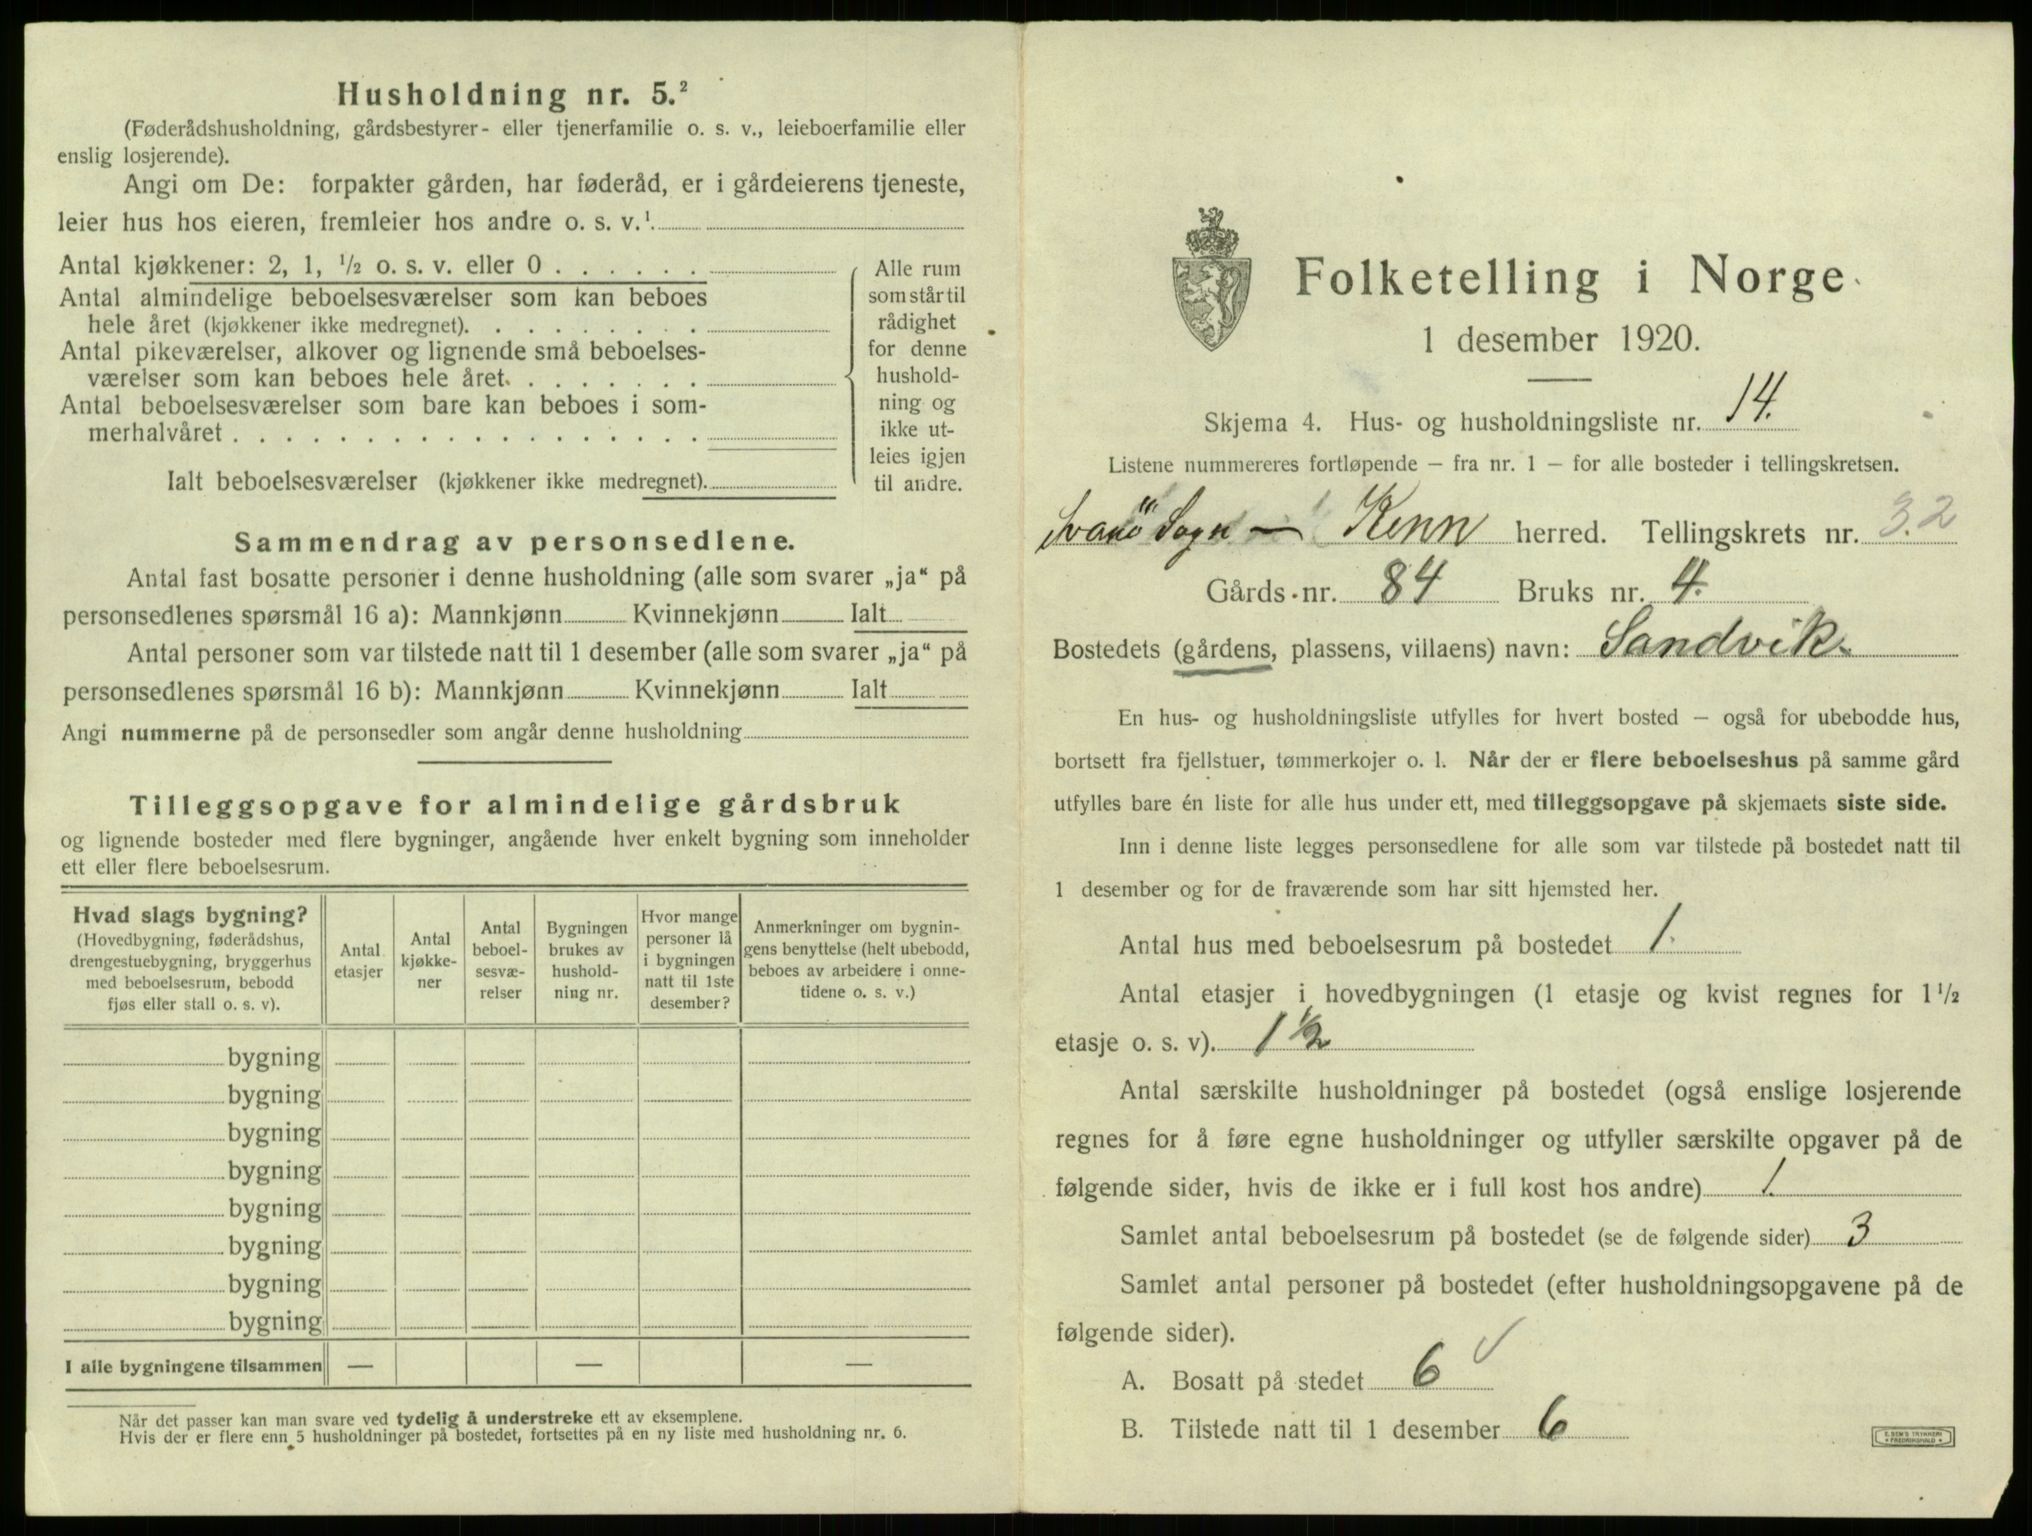 Husholdning nr. 5.²
(Føderådshusholdning, gårdsbestyrer- eller tjenerfamilie o. s. v., leieboerfamilie eller
enslig losjerende).
Angi om De: forpakter gården, har føderåd, er i gårdeierens tjeneste,
leier hus hos eieren, fremleier hos andre o. s. v.¹
Antal kjøkkener: 2, 1, ¹/₂ o. s. v. eller 0 . . . . . .
Antal almindelige beboelsesværelser som kan beboes
hele året (kjøkkener ikke medregnet). . . . . . . . .
Antal pikeværelser, alkover og lignende små beboelses-
værelser som kan beboes hele året. . . . . . . .
Antal beboelsesværelser som bare kan beboes i som-
merhalvåret . . . . . . . . . . . . . . . . . .
Ialt beboelsesværelser (kjøkkener ikke medregnet).
Alle rum
som står til
rådighet
for denne
hushold-
ning og
ikke ut-
leies igjen
til andre.
Sammendrag av personsedlene.
Antal fast bosatte personer i denne husholdning (alle som svarer „ja“ på
personsedlenes spørsmål 16 a): Mannkjønn Kvinnekjønn Ialt
Antal personer som var tilstede natt til 1 desember (alle som svarer „ja“ på
personsedlenes spørsmål 16 b): Mannkjønn Kvinnekjønn Ialt
Angi nummerne på de personsedler som angår denne husholdning
Tilleggsopgave for almindelige gårdsbruk
og lignende bosteder med flere bygninger, angående hver enkelt bygning som inneholder
ett eller flere beboelsesrum.
Hvad slags bygning?
(Hovedbygning, føderådshus,
drengestuebygning, bryggerhus
med beboelsesrum, bebodd
fjøs eller stall o. s. v).
Antal
etasjer
Antal
kjøkke-
ner
Antal
beboel-
sesvæ-
relser
Bygningen
brukes av
hushold-
ning nr.
Hvor mange
personer lå
i bygningen
natt til 1ste
desember?
Anmerkninger om bygnin-
gens benyttelse (helt ubebodd,
beboes av arbeidere i onne-
tidene o. s. v.)
bygning
bygning
bygning
bygning
bygning
bygning
bygning
bygning
I alle bygningene tilsammen — — —
Når det passer kan man svare ved tydelig å understreke ett av eksemplene.
Hvis der er flere enn 5 husholdninger på bostedet, fortsettes på en ny liste med husholdning nr. 6.
Folketelling i Norge
1 desember 1920.
Skjema 4. Hus- og husholdningsliste nr. 14.
Listene nummereres fortløpende — fra nr. 1 — for alle bosteder i tellingskretsen.
Svanö Sogn — Kinn herred. Tellingskrets nr. 3.2
Gårds nr. 84 Bruks nr. 4.
Bostedets (gårdens, plassens, villaens) navn: Sandvik
En hus- og husholdningsliste utfylles for hvert bosted — også for ubebodde hus,
bortsett fra fjellstuer, tømmerkojer o. l. Når der er flere beboelseshus på samme gård
utfylles bare én liste for alle hus under ett, med tilleggsopgave på skjemaets siste side.
Inn i denne liste legges personsedlene for alle som var tilstede på bostedet natt til
1 desember og for de fraværende som har sitt hjemsted her.
Antal hus med beboelsesrum på bostedet 1.
Antal etasjer i hovedbygningen (1 etasje og kvist regnes for 1¹/₂
etasje o. s. v). 1½
Antal særskilte husholdninger på bostedet (også enslige losjerende
regnes for å føre egne husholdninger og utfyller særskilte opgaver på de
følgende sider, hvis de ikke er i full kost hos andre) 1.
Samlet antal beboelsesrum på bostedet (se de følgende sider) 3
Samlet antal personer på bostedet (efter husholdningsopgavene på de
følgende sider).
A. Bosatt på stedet 6 ✓
B. Tilstede natt til 1 desember 6
E. SEM'S TRYKKERI
FREDRIKSHALD